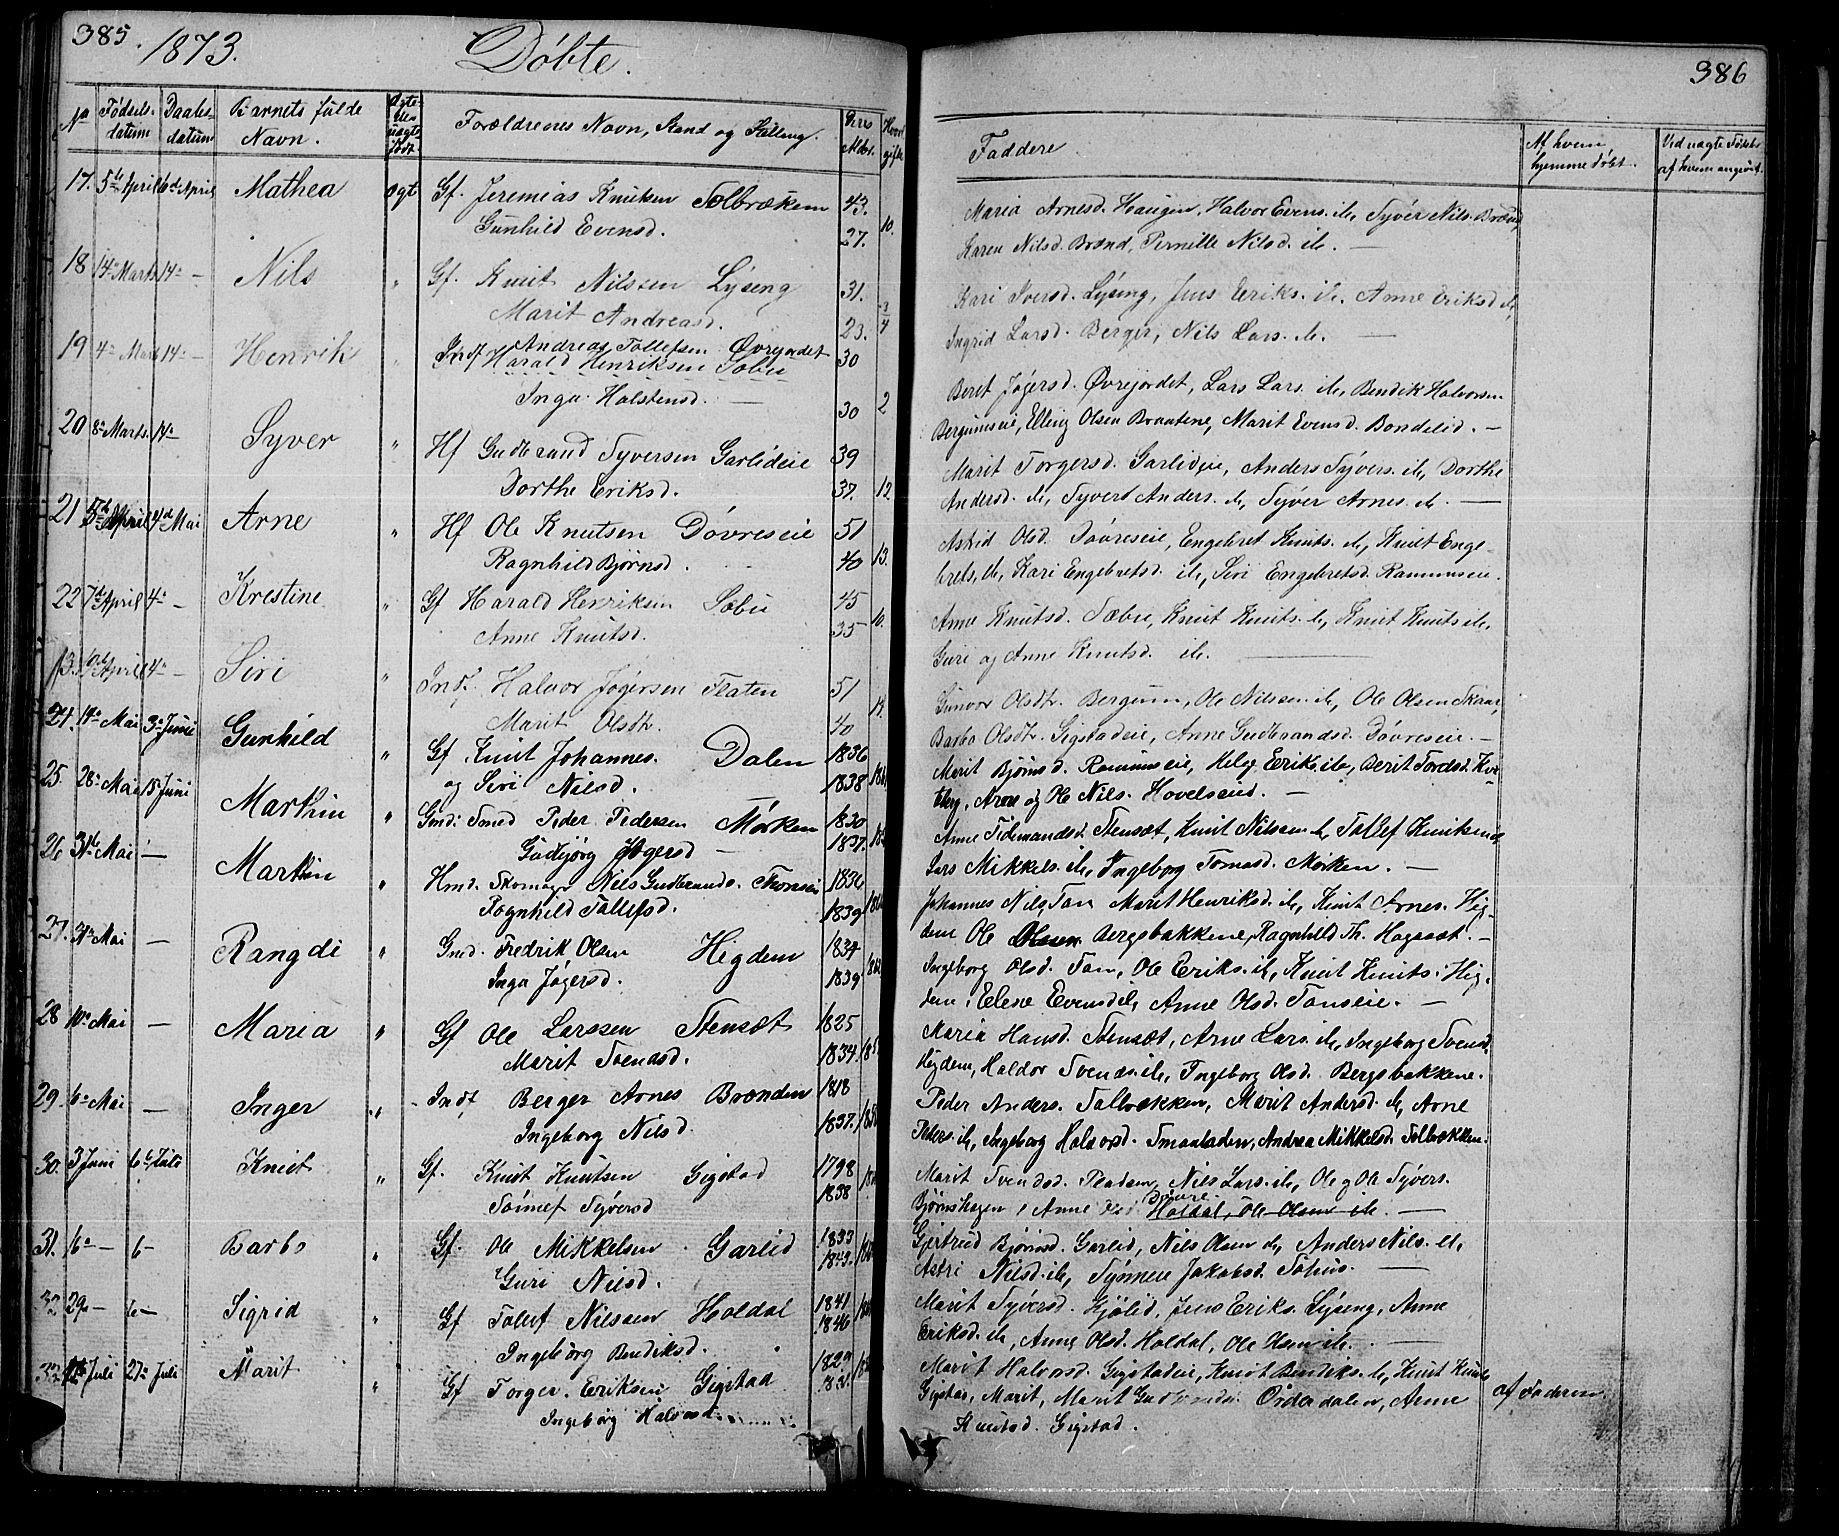 385. 1873. Döbte.
No Födsels-datum Daabs-datum Barnets fulde Navn. Ægte eller uægte födt Forældrenes Navn, Stand og Stilling. Deres Alder. Hvor gifte
17. 5te April 6te April Mathea ægt Gf. Jeremias Knutsen Tolbrækken 43.
Gunhild Evensd. 27. 10.
18 14de Marts 14de — Nils " Gf. Knut Nilssen Lÿseng 31.
Marit Andreasd. 23. 3/4
19 4de Marts 14de — Henrik " Indf Andreas Tollefsen Øvrejordet 30
Harald Henriksen Sobu
Inga Halstensd. — 30 2
20 8de Marts. 14de Syver " Hf Gudbrand Syversen Garlideie 39
Dorthe Eriksd. 37. 12
21 5te April 4de Mai Arne " Hf Ole Knutsen Dövreseie 51
Ragnhild Björnsd. 40 13.
22 7de April 4de — Krestine " Gf Harald Henriksen Sæbu 45
Anne Knutsd. 35 10.
April 4de — Siri " Indf. Halvor Jögersen Flaten 51
Marit Olsdtr. 40 14.
24. 14de Mai 3de Juni Gunhild " Gf Knut Johannes. Dalen 1836
og Siri Nilsd. 1838
25. 28de Mai 15 Juni Marthin " Gmd. Smed Peder Pedersen Mörken 1830
Gudbjörg Jögersd — 1837.
26 31te Mai — Marthin " Hmd. Skomager Nils Gudbrands. Thonseie 1836
Ragnhild Tollefsd. 1839
27. 31te Mai — Rangdi " Gmd. Fredrik Olsen Higdem 1834
Inga Jögersd. 1839
28 10de Mai — Maria " Gf Ole Larssen Stensæt 1825
Marit Svendsd. 1834.
29. 6te Mai — Inger " Indf Berger Arnes Brænden 1818
Ingeborg Nilsd. 1837.
30. 3 Juni 6te Juli Knut " Gf. Knut Knutsen Gigstad 1798
Sönnef Syversd 1838
31. 6te — 6 — Barbo " Gf. Ole Mikkelsen Garlid 1833
Guri Nilsd. 1843.
32 29de — 6 — Sigrid " Gf Tollef Nilssen Holdal 1841
Ingebörg Bendiksd. 1846
33 Juli 27de Juli Marit " Gf Torger Eriksen Gigstad 1829
Ingebörg Halvorsd.
386
Faddere. Af hvem hjemmedöbt. Ved uagte Födsler af hvem angivet.
Maria Arnesd. Haugen, Halvor Evens. ib, Syvér Nils. Brænd,
Karen Nilsd. Brænd, Pernille Nilsd. ib. —
Kari Iversd. Lÿseng, Jens Eriks. ib. Anne Eriksd ib,
Ingrid Larsd. Berger, Nils Lars. ib. —
Beret Jögersd. Øvrejordet, Lars Lars. ib, Bendik Halvorsen
Bergumseie, Elling Olsen Brautene, Marit Evensd. Bondelid. —
Marit Torgersd. Garlideie, Anders Syvers. ib, Dorthe
Andersd. ib, Syvert Anders. ib, Syver Arnes. ib. —
Astrid Olsd. Dövreseie, Engebret Knuts. ib, Knut Enge-
brets, ib, Kari Engebretsd. ib, Siri Engebretsd. Ramumseie.
Anne Knutsd. Sæbu, Knut Knuts. ib, Knut Knuts ib,
Guri og Anne Knutsd. ib. —
Gunvor Olsdtr. Bergum, Ole Nilssen ib, Ole Olsen Skaar,
Barbo Olsdtr. Gigstadeie, Anne Gudbrandsd. Dövreseie. —
Marit Björnsd. Ramumseie, Helge Eriks ib, Berit Tordsd. Kvi-
teberg, Arne og Ole Nils. Hovelsrud. —
Anne Tidemandsd. Stensæt, Knut Nilsen ib, Tollef Knutsen ib,
Lars Mikkels. ib, Ingeborg Tomasd. Mörken. —
Johannes Nils, Ton Marit Henriksd. ib, Knut Arnes. Hig-
dem Ole Olssen Bergsbakkene, Ragnhild Th. Hagaset. —
Ingeborg Olsd. Ton, Ole Eriks. ib, Knut Knuts. Hig-
dem, Elene Evensd ib, Anne Olsd. Tonseie. —
Maria Hansd. Stensæt, Arne Lars. ib, Ingeborg Svendsd.
Higdem, Haldor Svends. ib, Ingeborg Olsd. Bergsbakkene.
Peder Anders. Tolbrækken, Marit Andersd. ib, Arne
Peders. ib, Ingeborg Halvorsd. Smaaladen, Andrea Mikkelsd. Tolbrækken.
Marit Svendsd. Pladsen, Nils Lars. ib, Ole og Ole Syvers.
Björnshagen, Anne Holdal, Ole Olsen ib. —
Gjertrud Björnsd. Garlid, Nils Olsen ib, Anders Nils. ib,
Astri Nilsd. ib, Synneve Jakobsd. —
Marit Syversd. Kjölid, Jens Eriks. Lÿseng, Anne
Eriksd. ib, Anne Olsd. Holdal, Ole Olsen ib. —
Marit Halvorsd. Gigstadeie, Knut Bendiks. ib, Knut Knuts
Gigstad, Marit, Marit Ordendalen, Anne af Faderen
Knutsd. Gigstad.